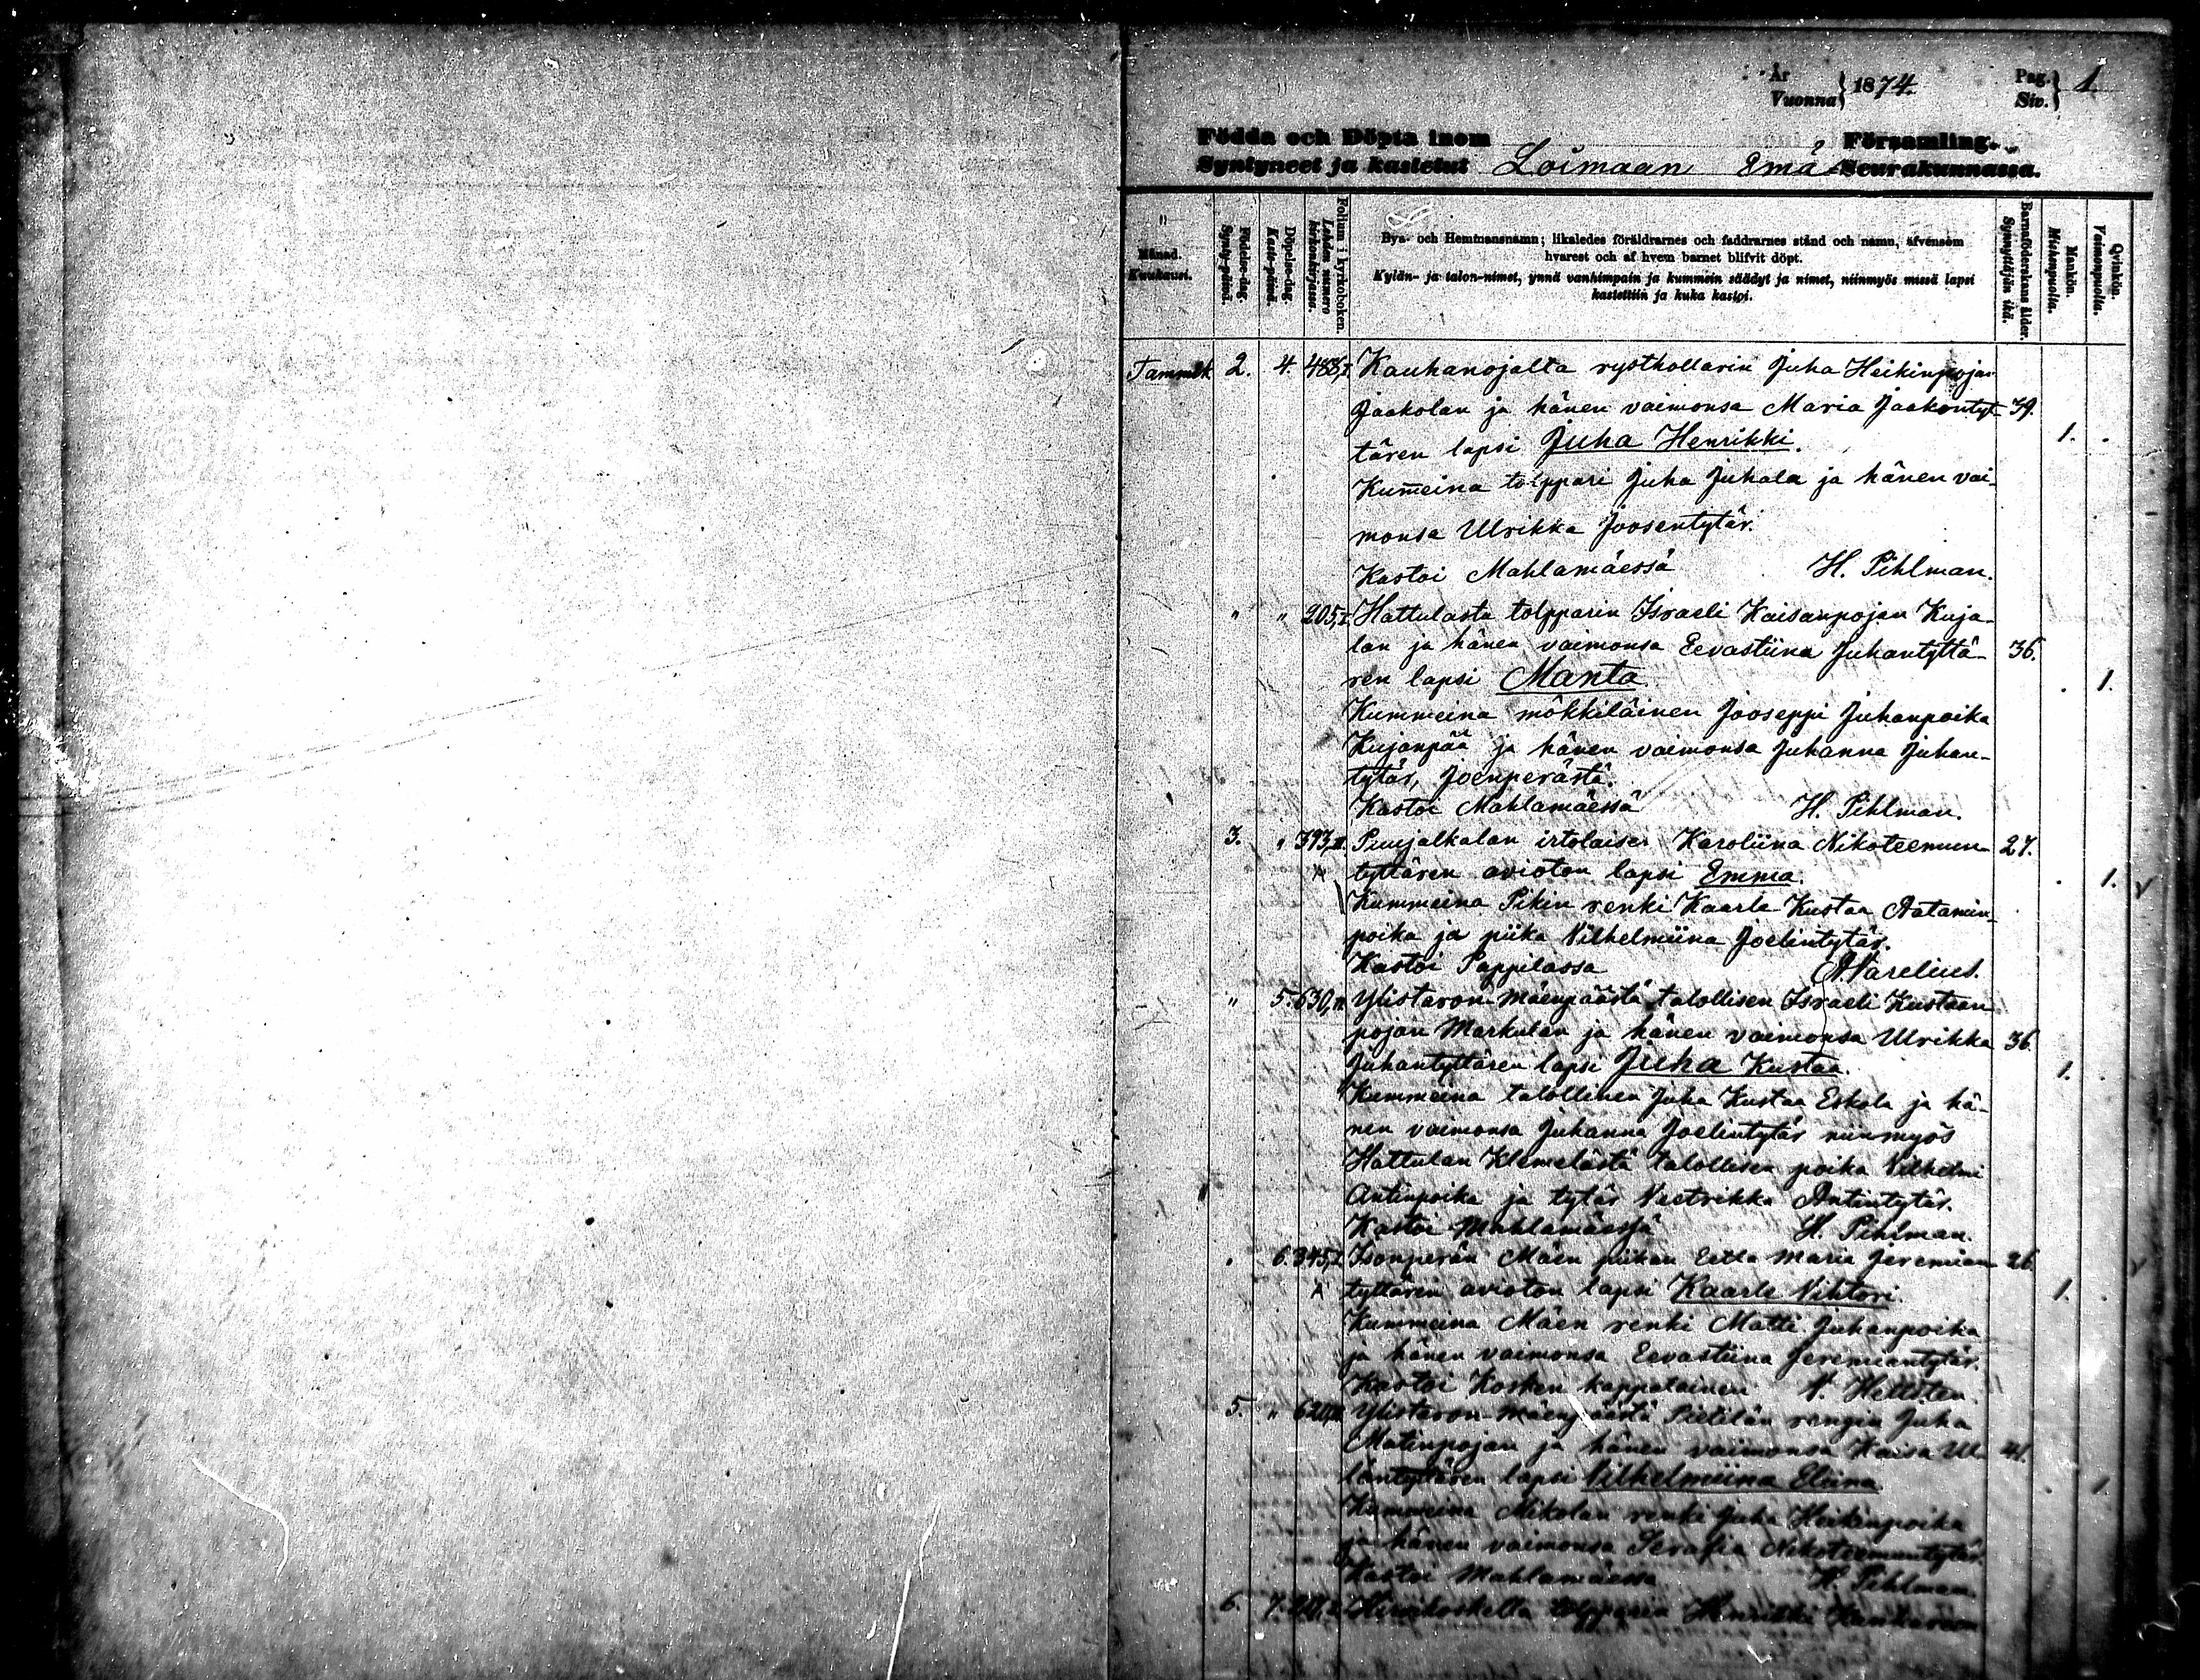 År
Vuonna } 1874. Pag.
Siv. } 1.
Födda och Döpta inom Församling.
Syntyneet ja kastetut Loimaan Emä Seurakunnassa.
Månad.
Kuukausi.
Födelse-dag.
Synty-päivä.
Döpelse-dag.
Kaste-päivä.
Folium i kyrkoboken.
Lehden numero kirkonkirjassa.
Bys- och Hemmansnamn; likaledes föräldrarnes och faddrarnes stånd och namn, äfvensom
hvarest och af hvem barnet blifvit döpt.
Kylän- ja talon-nimet, ynnä vanhimpain ja kummein säädyt ja nimet, niinmyös missä lapsi
kastettiin ja kuka kastoi.
Barnaföderskans ålder.
Synnyttäjän ikä.
Mankön.
Miehenpuolia.
Qvinkön.
Vaimonpuolia.
Tammik 2. 4. 488,I. Kauhanojalta rysthollarin Juha Heikinpojan
Jaakolan ja hänen vaimonsa Maria Jaakontyt- 39.
tären lapsi Juha Henrikki. 1.
Kum̄eina tolppari Juha Juhala ja hänen vai-
monsa Ulrikka Joosentytär.
Kastoi Mahlamäessä H. Pihlman.
" " 205,I. Hattulasta tolpparin Israeli Kaisanpojan Kuja-
lan ja hänen vaimonsa Eevastiina Juhantyttä- 36.
ren lapsi Manta. 1.
Kummeina mökkiläinen Jooseppi Juhanpoika
Kujanpää ja hänen vaimonsa Juhanna Juhan-
tytär, Joenperästä.
Kastoi Mahlamäessä H. Pihlman.
3. " 393,II. Puujalkalan irtolaisen Karoliina Nikoteemuun- 27.
tyttären avioton lapsi Emma. 1.
Kummeina Pikin renki Kaarle Kustaa Aatamin-
poika ja piika Vilhelmiina Joelintytär.
Kastoi Pappilassa A. Varelius.
" 5. 630,II. Ylistaron-Mäenpäästä talollisen Israeli Kustaan
pojan Markulan ja hänen vaimonsa Ulrikka 36.
Juhantyttären lapsi Juha Kustaa. 1.
Kummeina talollinen Juha Kustaa Eskola ja hä-
nen vaimonsa Juhanna Joelintytär niinmyös
Hattulan Klemelästä talollisen poika Vilhelmi
Antinpoika ja tytär Veetrikka Antintytär.
Kastoi Mahlamäessä H. Pihlman.
" 6. 345,I. Isonperän Mäen piikan Eetla Maria Jeremian- 26.
tyttären avioton lapsi Kaarle Vihtori. 1.
Kummeina Mäen renki Matti Juhanpoika
ja hänen vaimonsa Eevastiina Jeremiantytär.
Kastoi Kosken kappalainen V. Hellsten
5. " 620,II. Ylistaron-Mäenpäästä Pietilän rengin Juha
Matinpojan ja hänen vaimonsa Kaisa Ul- 41.
lantyttären lapsi Vilhelmiina Eliina 1.
Kummeina Mikolan renki Juha Heikinpoika
ja hänen vaimonsa Serafia Nikoteemuntytär.
Kastoi Mahlamäessä H. Pihlman.
6. 7. Hirvikoskelta tolpparin Henrikki